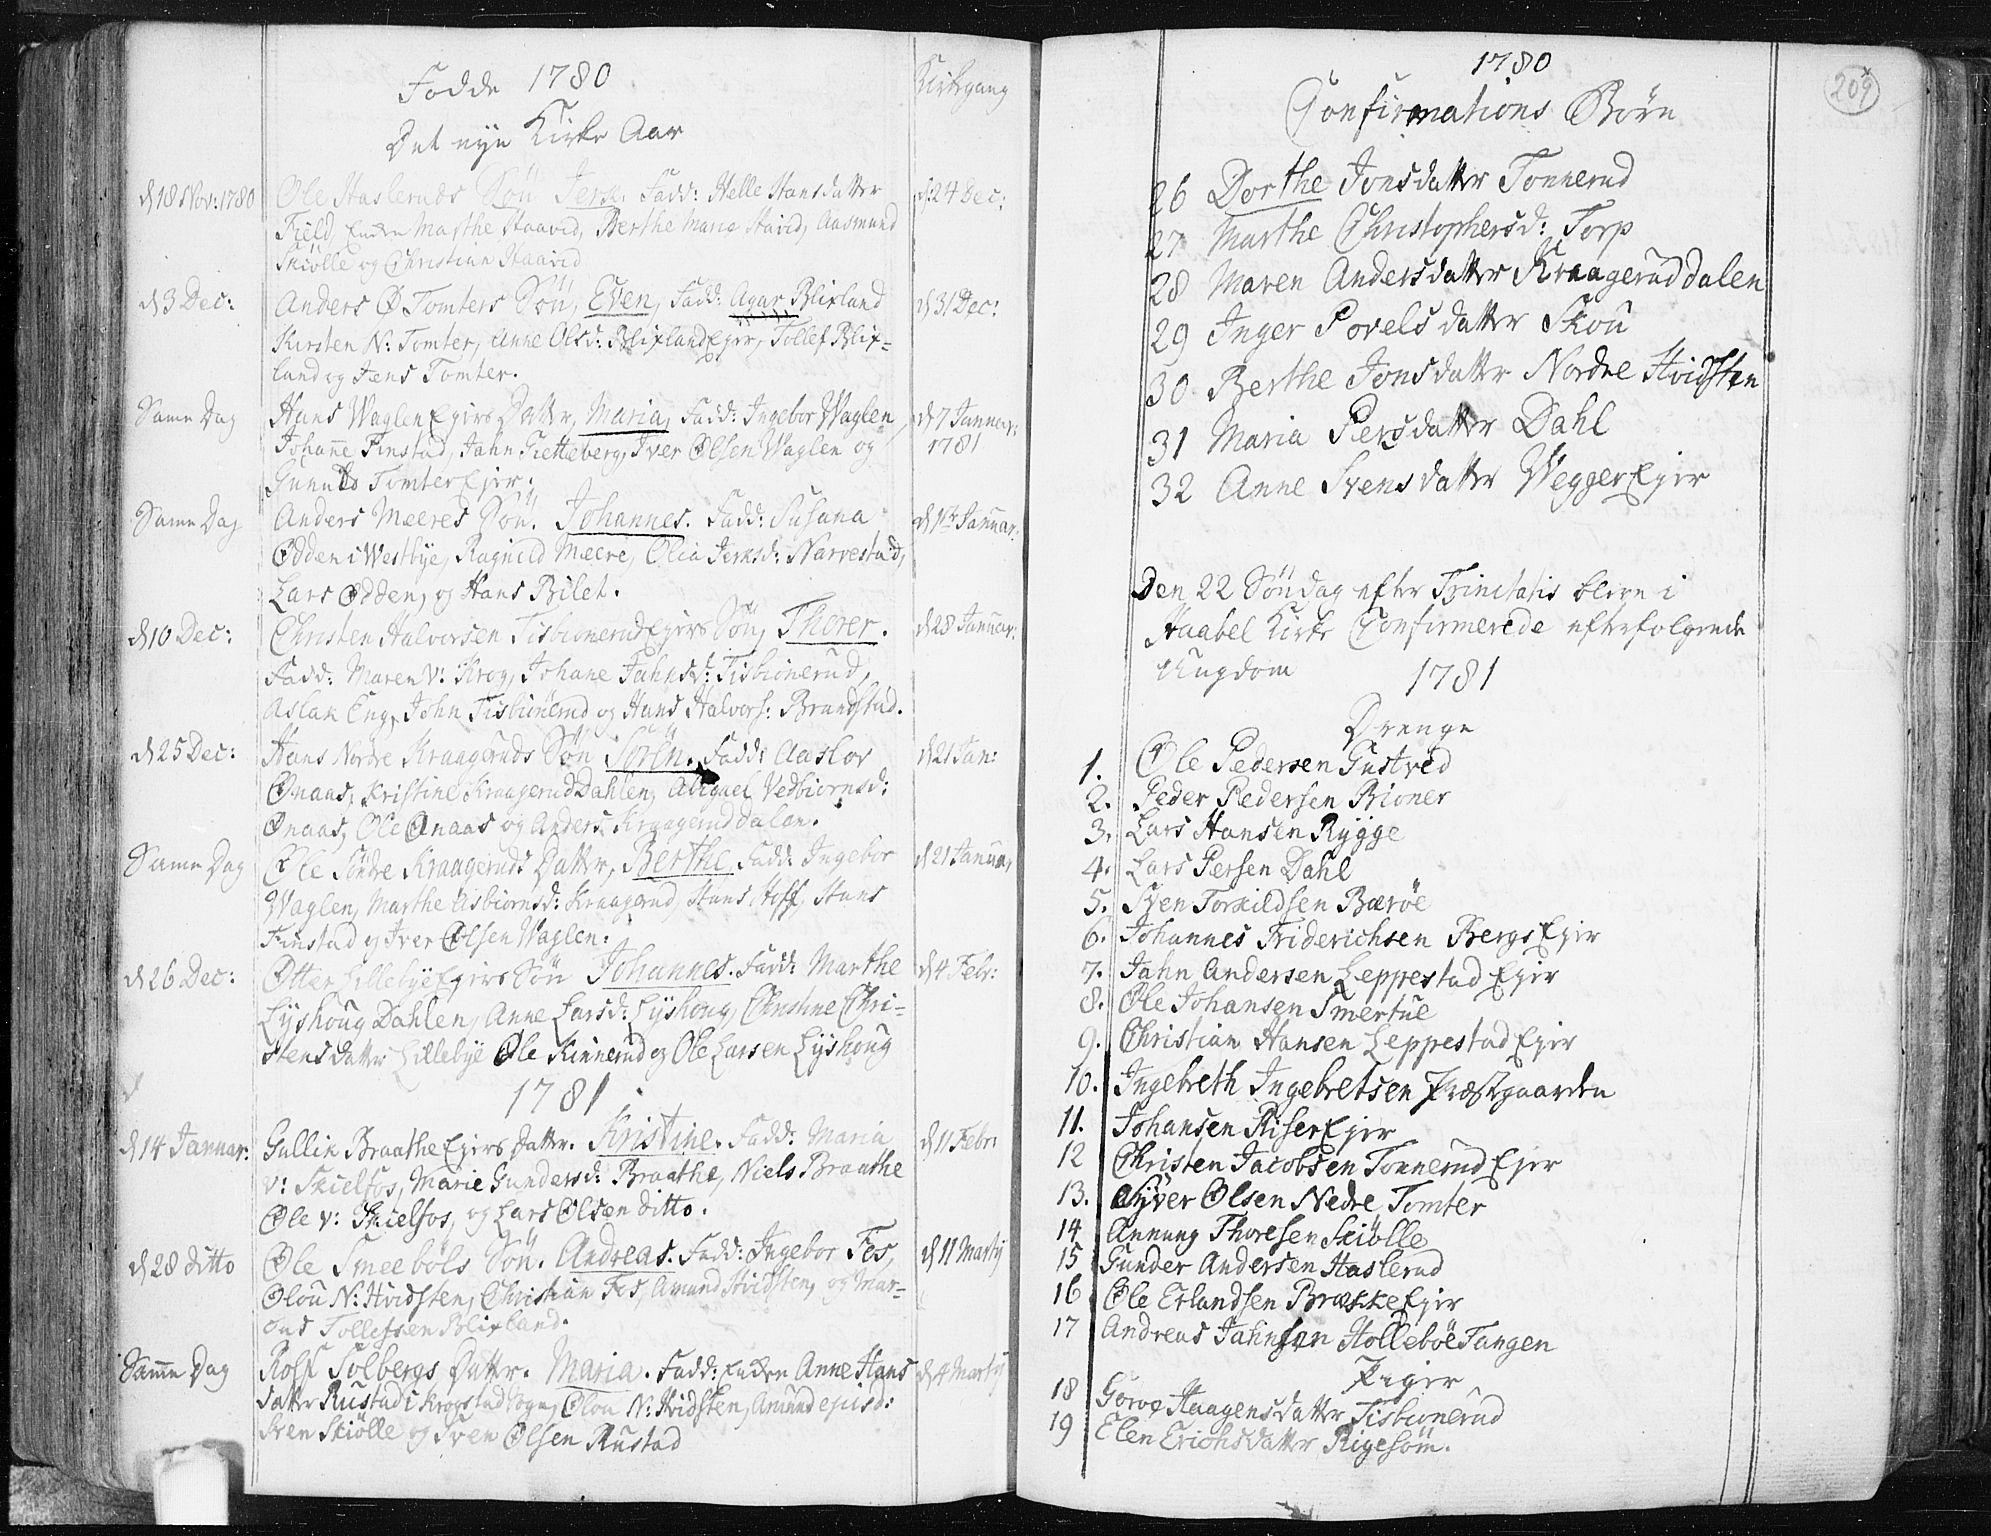 Fødde 1780
Kirkegang
Det nye Kirke Aar
d 18 Nov: 1780 Ole Hasleruds Søn Jens. Fadd: Helle Hansdatter d: 24 Dec:
Field, Enken Marthe Haavid, Berthe Marie Havid, Aasmund
Skiølle og Christian Haavid
d 3 Dec: Anders Ø Tomters Søn, Even, Fadd: Agar Blixland d 31 Dec:
Kirsten N: Tomter, Anne Olsd: BlixlandEyer, Tollef Blix-
land og Jens Tomter.
Same Dag Hans WaglenEyers Datter, Maria, Fadd: Ingebor Waglen, d 7 Januar:
Johane Finstad, Jahn Tietteberg, Iver Olsen Waglen og 1781
Gunder TomterEjer.
Same Dag Anders Meeres Søn. Johannes. Fadd: Susana Januar:
Odden i Westbye, Ragnild Meere, Olia Jensd: Narvestad,
Lars Odden, og Hans Bilet.
d 10 Dec: Christen Halvorsen TisbionerudEyers Søn, Thorer. d 28 Januar:
Fadd: Maren v: Krog, Johane Jahnsd: Tisbionerud,
Aslak Eng, John Tisbiönerud og Hans Halvors: Brandstad.
d 25 Dec: Hans Nordre Kraageruds Søn Sørèn. Fadd: Aaslov d 21 Jan:
Ønaas, Kristine KraagerudDahlen, Abigael Vedbiornsd:
Ønaas, Ole Ønaas og Anders Kraageruddalen.
Same Dag Ole Søndre Kraageruds Datter, Berthe. Fadd: Ingebor d 21 Januar
Waglen, Marthe Asbiornsd: Kraagerud, Hans Hoff, Hans
Finstad og Iver Olsen Waglen.
d 26 Dec: Otter LillebyeEyers Søn Johannes. Fadd: Marthe d 4 Febr:
Lyshoug Dahlen, Anne Larsd: Lyshoug, Christine Chri-
stensdatter Lillebye Ole Kinnerud og Ole Larsen Lyshoug
1781
d 14 Januar: Gullik BraatheEyers Datter. Kristine. Fadd: Maria d 11 Febr:
v: Skielfos, Marie Gundersd: Braathe, Niels Braathe
Ole v: Skielfos, og Lars Olsen ditto.
d 28 ditto Ole Smeebøls Søn. Andreas. Fadd: Ingebor Fes, d 11 Martij
Olou N: Hvidsten, Christian Fes, Amund Hvidsten, og Mar-
ous Tollefsen Blixland.
Same Dag Rolf Solbergs Datter. Maria. Fadd: Enken Anne Hans d 4 Martij
datter Rustad i Krogstad Sogn, Olou N: Hvidsten, Amund ejusd:
Sven Skiölle og Sven Olsen Rustad
209
1780
Confirmations Børn
26 Dorthe Jonsdatter Tonnerud
27 Marthe Christophersd: Torp
28 Maren Andersdatter Kraageruddalen
29 Inger Povelsdatter Skou
30 Berthe Jonsdatter Nordre Hvidsten
31 Maria Persdatter Dahl
32 Anne Svensdatter WeggerEyer
Den 22 Søndag efter Trinitatis bleve i
Haabel Kirke Confirmerede efterfølgende
Ungdom 1781
Drenge
1. Ole Pedersen Gustved
2. Peder Pedersen Bioner
3. Lars Hansen Rygge
4. Lars Persen Dahl
5. Sven Torkildsen Bærøe
6. Johannes Friderichsen BergsEyer
7. Jahn Andersen LeppestadEyer
8. Ole Johansen Smertue
9. Christian Hansen LeppestadEyer
10. Ingebreth Ingebretsen Præstgaarden
11. Johansen RiserEyer
12 Christen Jacobsen TonnerudEyer
13. Syver Olsen Nedre Tomter
14 Annung Thoresen Skiølle
15 Gunder Andersen Haslerud
16 Ole Erlandsen BrækkeEyer
17 Andreas Jahnsen HollebøeTangen
Piger
18 Gorve Haagensdatter Tisbionerud
19 Elen Erichsdatter Rigesom.